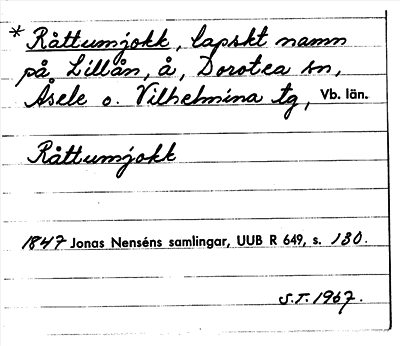 * Råttumjokk, lapskt namn
på Lillån, å, Dorotea sn,
Åsele o. Vilhelmina tg, Vb. län.
Råttumjokk
1847 Jonas Nenséns samlingar, UUB R 649, s. 130.
S.T. 1967.